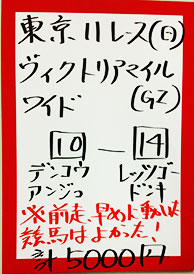 東京11レース(日)
ヴィクトリアマイル
ワイド (GI)
10 — 14
デンコウ レッツゴー
アンジュ ドンキ
※前走、早めに動いた
競馬はよかった!
計5000円